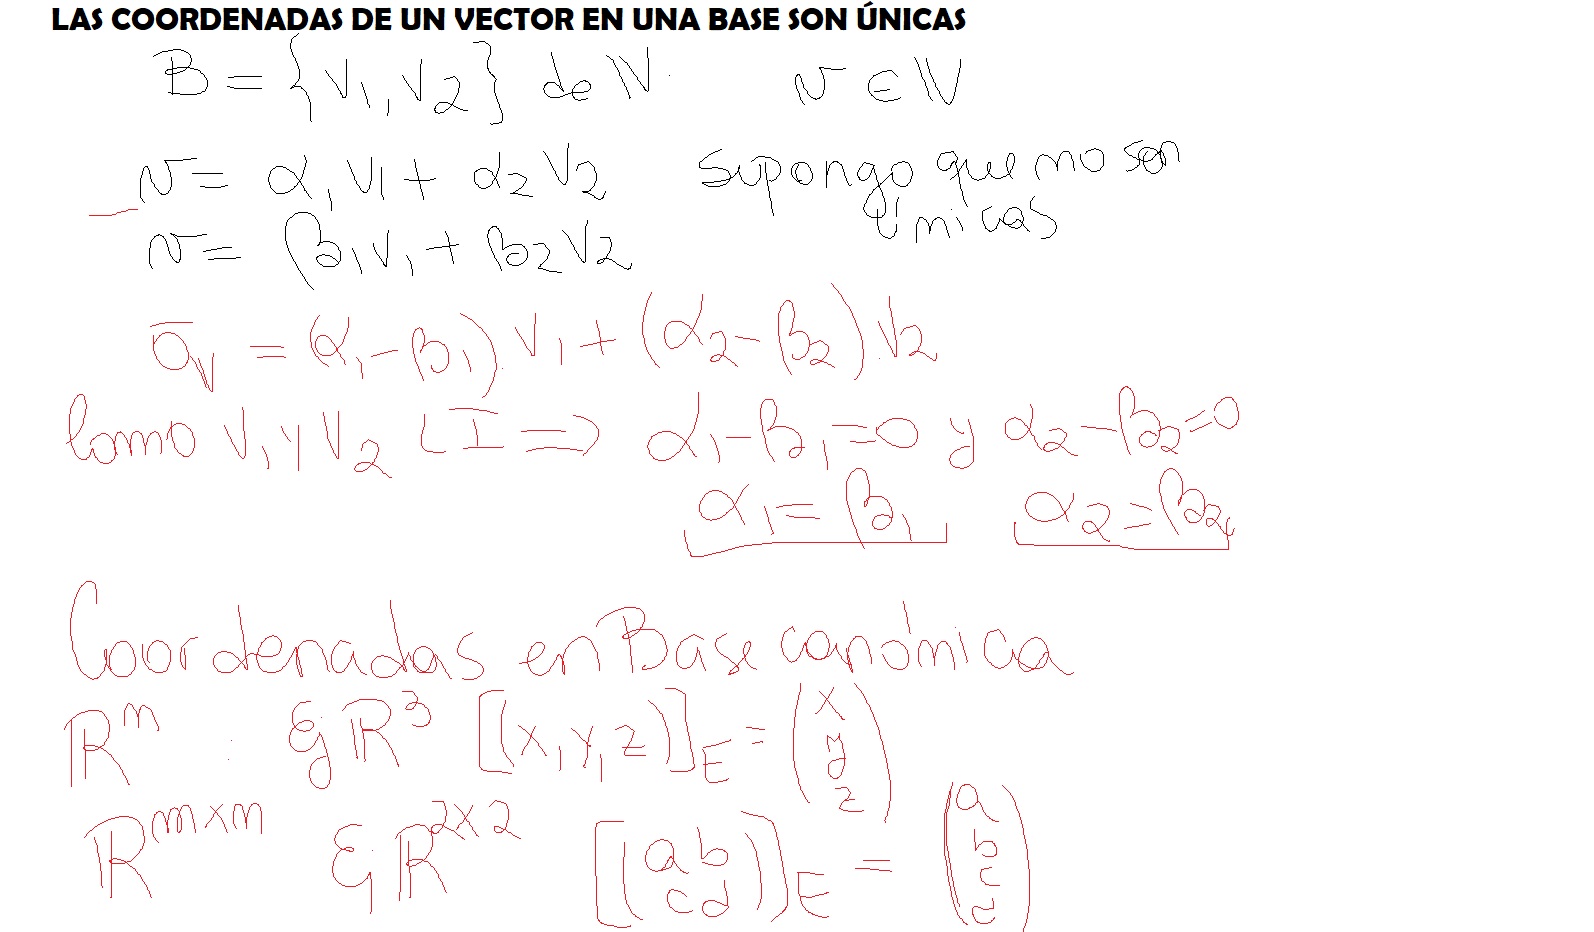 LAS COORDENADAS DE UN VECTOR EN UNA BASE SON ÚNICAS
B = {V₁, V₂} de V. v ∈ V
v = α₁V₁ + α₂V₂ Supongo que no son únicas
v = β₁V₁ + β₂V₂
0̄ᵥ = (α₁ - β₁) V₁ + (α₂ - β₂) V₂
Como V₁ y V₂ LI ⇒ α₁ - β₁ = 0 y α₂ - β₂ = 0
α₁ = β₁ α₂ = β₂
Coordenadas en Base canónica
Rⁿ : Ej R³ [(x, y, z)]_E = (x y z)
Rᵐˣⁿ Ej R²ˣ² [(a b c d)]_E = (a b c d)